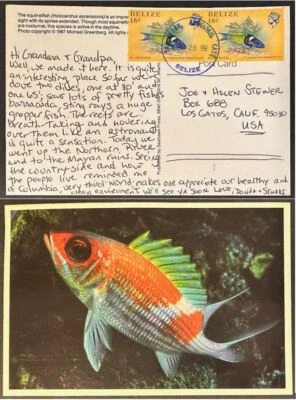 The squirrelfish (Holocentrus ascensionis) is an impre
sight with its spines extended. Though most squirrelfis
are nocturnal, this species is active in the daytime.
Photo copyright © 1987 Michael Greenberg. All rights
BELIZE
15c
BELIZE
BELIZE
28
89
Post Card
Hi Grandma & Grandpa,
Well we made it here. It is quite
an interesting place. So far we've
dove two dives, one at 80' and
one 65'; saw lots of pretty fishes
barracuda, sting rays a huge
grouper fish. The reefs are
Breath-Taking and hovering
over them like an astronaut
is quite a sensation. Today we
went up the Northern River
and to the Mayan ruins. Seeing
the country-side and how
the people live reminded me
of Columbia, very third world; makes one appreciate our healthy and
clean enviroment. We'll see ya soon Love, Donna &
Published by
Joe & Helen
Box 688
Los Gatos, Calif. 95030
USA